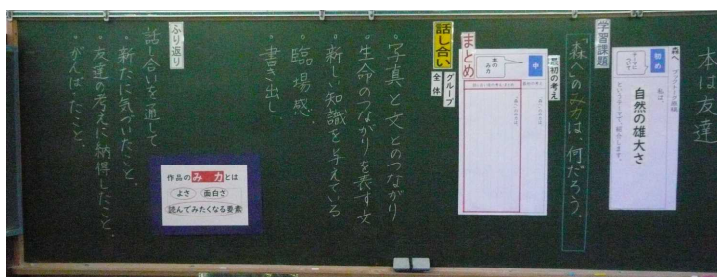 本は友達
初め
森へ
ブックトーク原稿
テーマについて
私は、
自然の雄大さ
というテーマで、紹介します。
学習課題
「森へ」のみ力は、何だろう。
最初の考え
中
本のみ力
まとめ
話し合い
グループ
全体
・写真と文とのつながり
・生命のつながりを表す文
・新しい知識を与えている
・臨場感
・書き出し
作品のみ力とは
よさ
面白さ
読んでみたくなる要素
ふり返り
話し合いを通して
・新たに気づいたこと。
・友達の考えに納得したこと。
・がんばったこと。